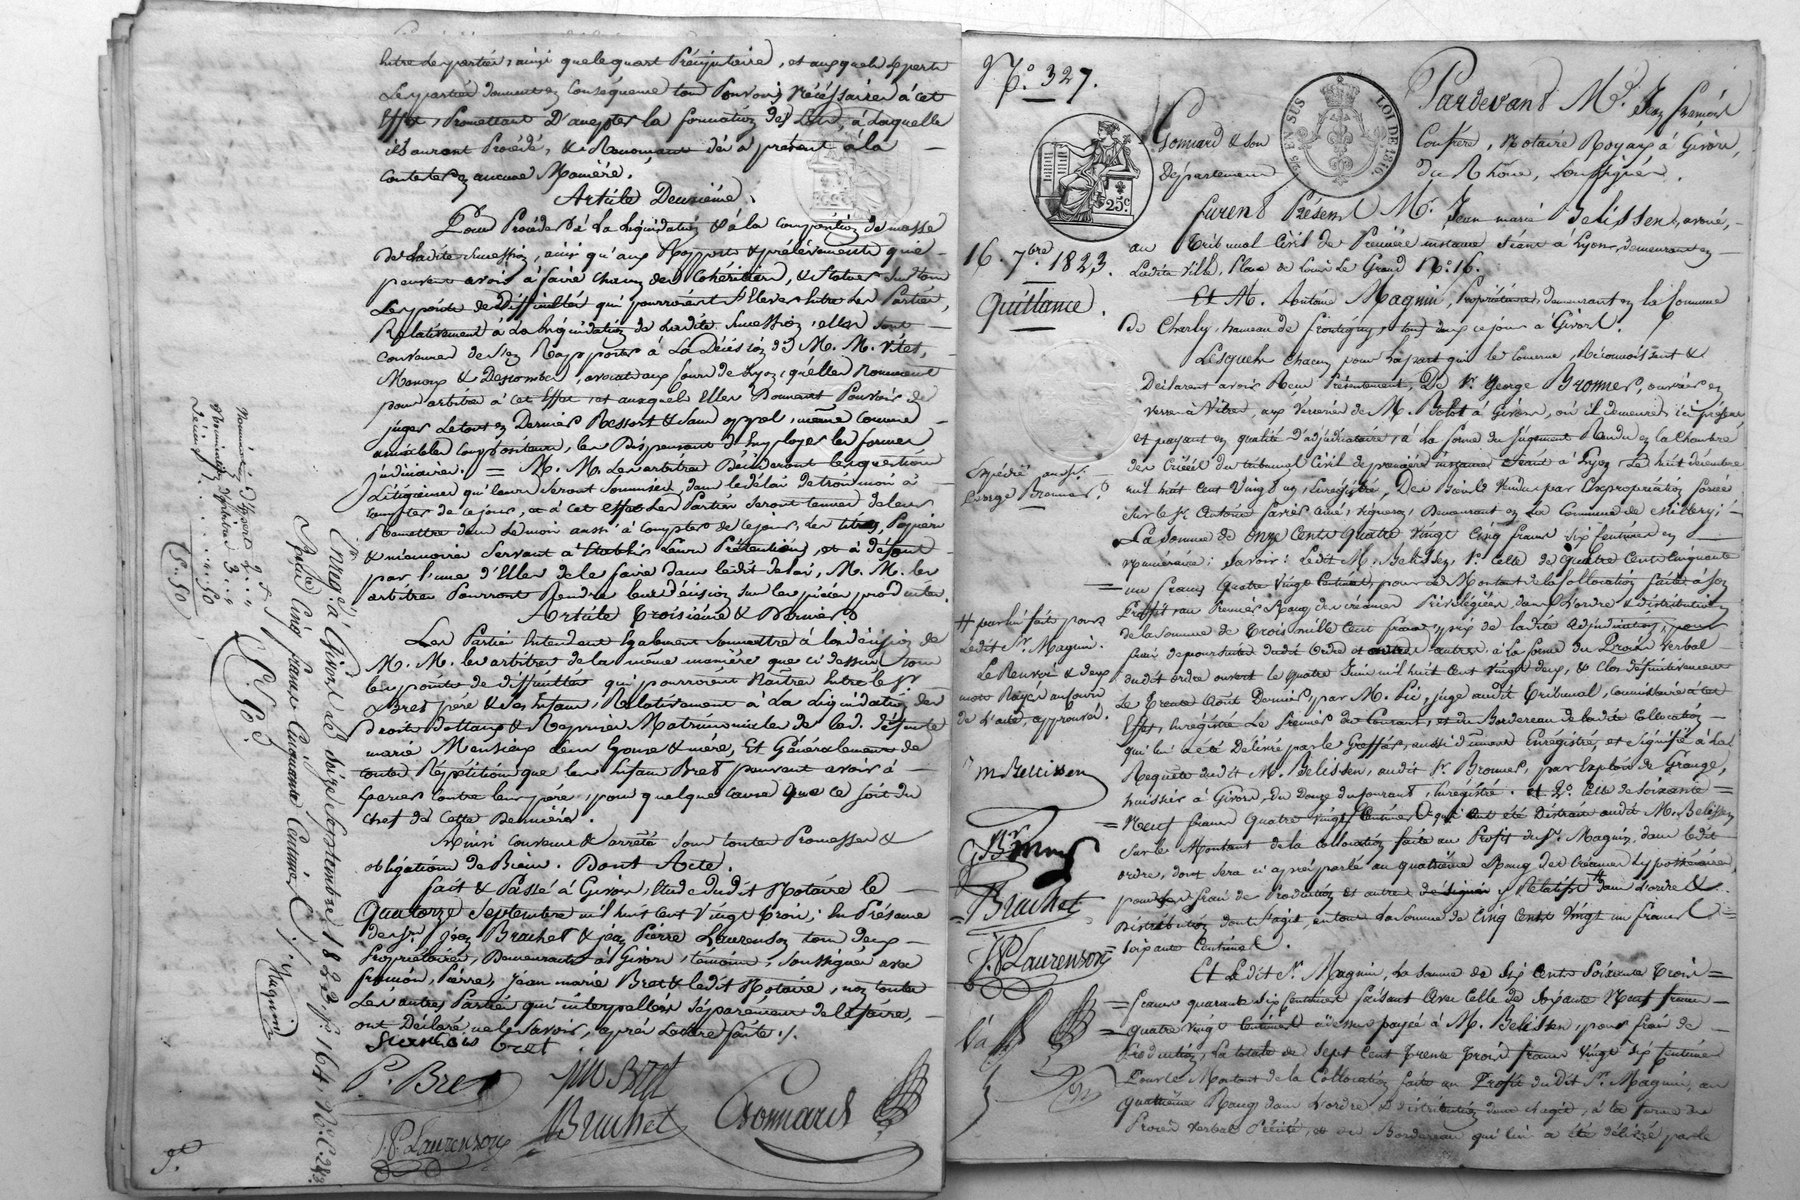 entre les parties, ainsi que le quart Préciputaire, et auxquels experts
Les parties donnent en Conséquence tous Pouvoirs Nécéssaires à cet
Effet, Promettant D'accepter la formation des Lots, à Laquelle
ils auront Procédé, & Renonçant dès à présent à la
contester en aucune Manière.
Article Deuxiéme.
Pour Procéder à La Liquidation & à la composition de masse
de Ladite Succession, ainsi qu'aux Rapports & prélèvements que
peuvent avoir à faire chacun des Cohéritiers, & Statuer sur tous
Les points de Difficultés qui pourroient S'élever Entre Les Parties,
Relativement à La Liquidation de Ladite Succession, elles sont
convenues de s'en Rapporter à La Décision de M. M. Vitet,
& Descombes, avocats aux Cours de Lyon, qu'elles Nomment
pour arbitres à cet Effet, et auxquels Elles Donnent Pouvoir de
juger Le tout en Dernier Ressort & sans appel, même comme
amiables Compositeurs, les Dispensant d'Employer les formes
judiciaires. = M. M. Les arbitres Décideront les questions
Litigieuses qui leur seront soumises, dans le délai de trois mois à
compter de ce jour, et à cet effet Les Parties seront tenues de leur
Remettre dans Le mois aussi à compter de ce jour, Les titres, Papiers
& mémoires Servant à Etablir Leurs Prétentions, et à défaut
par l'une d'Elles de le faire dans ledit délai, M. M. les
arbitres Pourront Rendre leur décision sur les pièces produites.
Article Troisiéme & Dernier.
Les Parties Entendent également soumettre à la décision de
M. M. les arbitres de la même manière que ci dessus, tous
les points de difficultés qui pourroient Naître Entre le Sr.
Bret père & ses Enfans, Relativement à La Liquidation des
droits dottaux & Reprises Matrimoniales de lad. défunte
marie leur Epouse & mère, Et Généralement de
toutes Répétitions que les Enfans Bret peuvent avoir à
Exercer contre leur père, pour quelque cause que ce soit du
chef de cette Dernière.
Ainsi convenu & arrêté sous toutes Promesses &
obligations de Biens. Dont Acte.
fait & Passé à Givors, Etude dudit Notaire le
Quatorze Septembre mil huit Cent Vingt trois; En Présence
de Sr. Jean Brachet & jean Pierre Laurenson tous deux
Propriétaires, Demeurants à Givors, témoins, Soussignés avec
françois, Pierre, Jean marie Bret & ledit Notaire, non toutes
Les autres Parties qui interpellées séparément de le faire,
ont Déclaré ne le Savoir, après Lecture faite ./.
francois bret
P. Bret
JM BRET
J.P. Laurenson
JBrachet
Gonnard
Enreg.é à Givors le Seize Septembre 1823 fo. 164
Reçu Cinq francs Cinquante Centimes
Magnin
5. 50
No. 327.
25 c
25 EN SUS
LOI DE 1816
Pardevant Me. Jean françois
Gonnard & son Confrère, Notaires Royaux à Givors,
Département du Rhône, Soussignés.
furent Présens M. Jean marie Belissen, avoué,
au Tribunal Civil de Première instance séant à Lyon, demeurant en
Ladite Ville, Place de Louis Le Grand No. 16.
16. 7bre 1823.
Quittance.
Et M. Antoine Magnin, Propriétaire, demeurant en la Commune
De Charly, hameau de frontigny, tous deux ce jour à Givors.
Lesquels chacun pour la part qui le concerne, Reconnoissent &
Déclarent avoir Reçu Présentement, De Sr. George Bronner, ouvrier en
verre à Vitres, aux Verreries de M. Bolot à Givors, où il demeure, ici présent
et payant en qualité d'adjudicataire, à la forme du Jugement Rendu en la Chambre
des Criées du tribunal Civil de première instance séant à Lyon Le huit décembre
mil huit Cent Vingt un, Enregistré, Des Biens Vendus par Expropriation forcée
sur le Sr. Antoine Jarrès ainé, Vigneron, Demeurant en La Commune de Millery;
Expédié aud. Sr.
George Bronner.
La Somme de Onze Cents Quatre Vingt Cinq francs Dix Centimes en
Numéraire; Savoir: Ledit M. Belissen, 1o. Celle de Quatre Cents Cinquante
un francs Quatre Vingt Centimes, pour le Montant de la Collocation faite à son
Proffit au Premier Rang des créances Privilégiées, dans l'ordre & distribution
de la Somme de Trois mille Cent francs, prix de ladite adjudication, pour
frais de poursuite dudit Ordre et autres, à la forme du Procès Verbal
dudit ordre ouvert le quatre Juin mil huit Cent Vingt deux, & Clos définitivement
Le Trente Août Dernier, par M. Pic, juge audit Tribunal, Commissaire à cet
Effet, Enregistré Le Premier du Courant, et du Bordereau de ladite Collocation
qui lui a été Délivré par le Greffier, aussi dûment Enregistré, et signifié à La
Requête dudit M. Belissen, audit Sr. Bronner, par Exploit de Grange,
huissier à Givors, Du Douze du Courant, Enregistré. Et 2o. Celle de soixante
Neuf francs Quatre Vingt Centimes qui ont été Distraits audit M. Belissen
sur le Montant de la Collocation faite au Profit du Sr. Magnin, dans ledit
ordre, dont sera ci après parlé au quatrième Rang des Créances hypothécaires,
pour les frais de Production et autres Relatifs # dans l'ordre &
Distribution dont s'agit, en tout La Somme de Cinq Cents Vingt un francs
Soixante Centimes.
# par lui faits pour
Ledit Sr. Magnin.
Le Renvoi & deux
mots Rayés au Cours
de l'acte, approuvés.
m Bellissen
G Bronner
JBrachet
J.P. Laurenson
Et Ledit Sr. Magnin, La Somme de Six Cents Soixante trois
francs quarante six Centimes faisant avec Celle de Soixante Neuf francs
quatre vingt Centimes ci dessus payée à M. Belissen, pour frais de
Production, La totale de Sept Cent Trente Trois francs Vingt Six Centimes
Pour le Montant de la Collocation faite au Profit dudit Sr. Magnin, au
quatrième Rang dans l'ordre & distribution dont s'agit, à la forme du
Procès Verbal Précité, et du Bordereau qui lui a été délivré par le